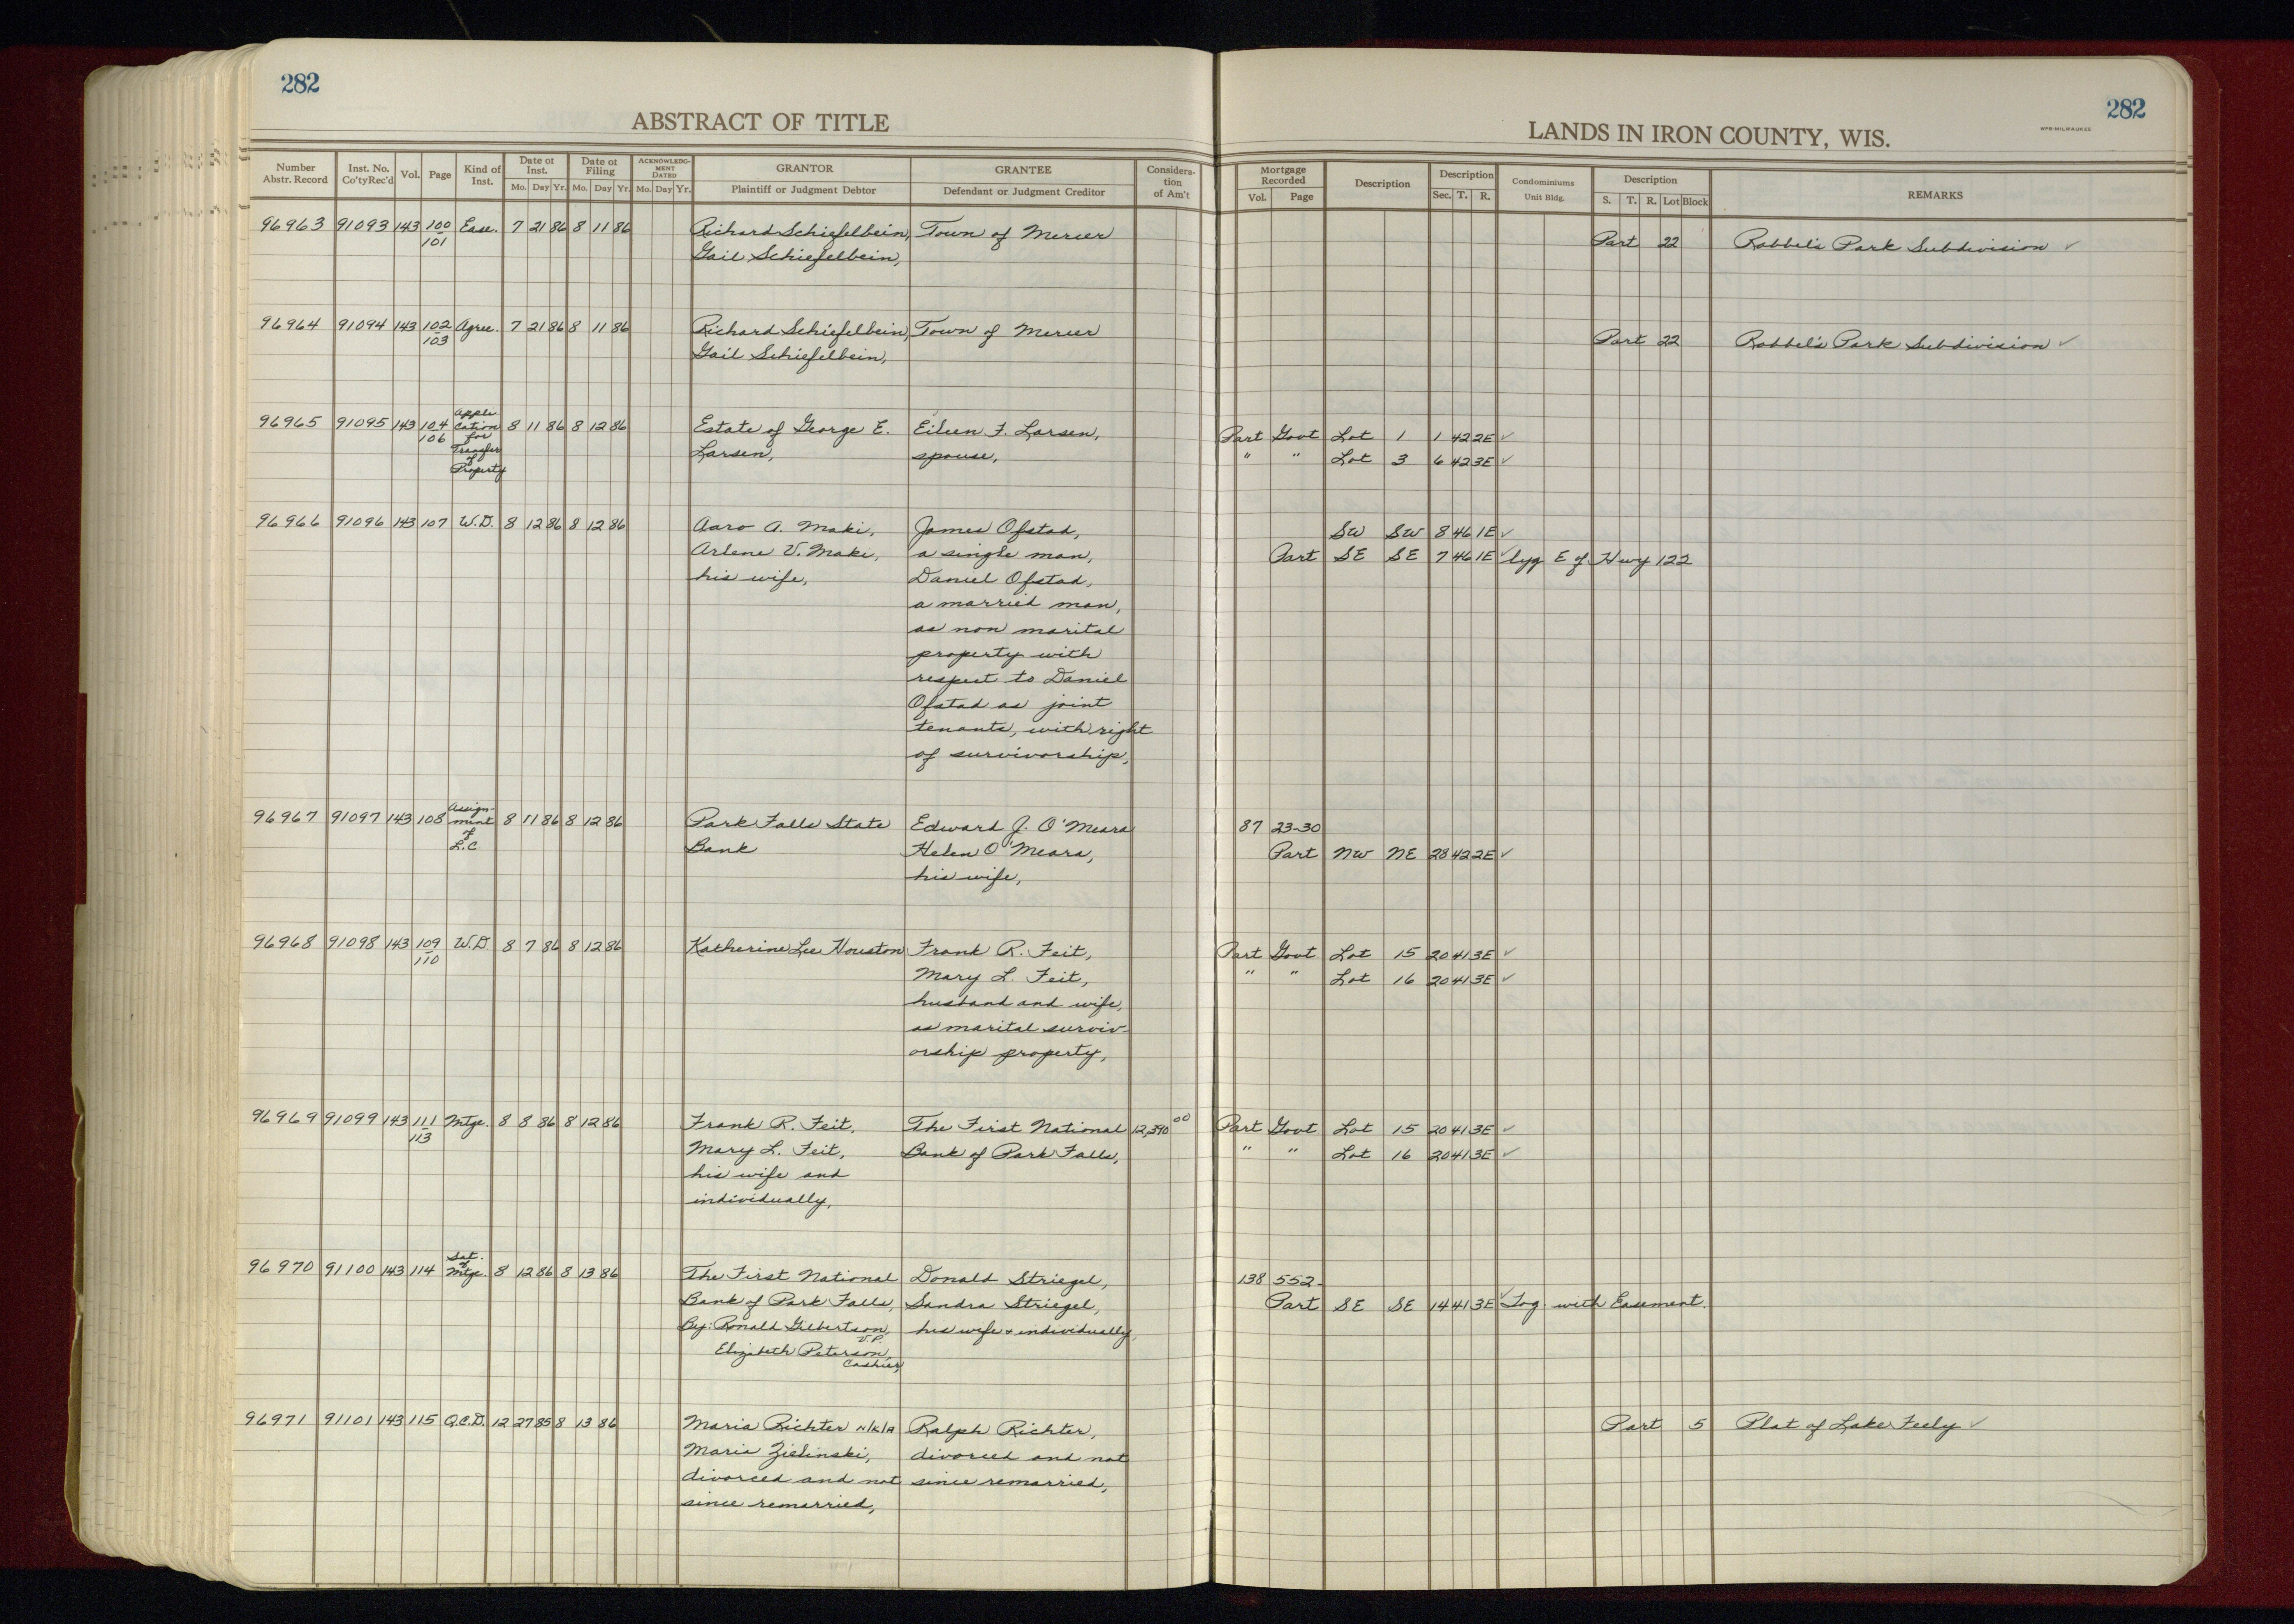 282
ABSTRACT OF TITLE
Number Abstr. Record | Inst. No. Co'ty Rec'd | Vol. | Page | Kind of Inst. | Date of Inst. Mo. Day Yr. | Date of Filing Mo. Day Yr. | ACKNOWLEDGMENT DATED Mo. Day Yr. | GRANTOR Plaintiff or Judgment Debtor | GRANTEE Defendant or Judgment Creditor | Consideration of Am't
96963 91093 143 100 Ease. 7 21 86 8 11 86 Richard Schiefelbein, Town of Mercer
101 Gail Schiefelbein,
96964 91094 143 102 Agree. 7 21 86 8 11 86 Richard Schiefelbein, Town of Mercer
103 Gail Schiefelbein,
Appli
96965 91095 143 104 cation 8 11 86 8 12 86 Estate of George E. Eileen F. Larsen,
106 for
Transfer Larsen, spouse,
of
Property
96966 91096 143 107 W.D. 8 12 86 8 12 86 Aaro A. Maki, James Ofstad,
Arlene V. Maki, a single man,
his wife, Daniel Ofstad,
a married man,
as non marital
property with
respect to Daniel
Ofstad as joint
tenants, with right
of survivorship,
Assign-
96967 91097 143 108 ment 8 11 86 8 12 86 Park Falls State Edward J. O'Meara
of
L.C Bank Helen O'Meara,
his wife,
96968 91098 143 109 W.D. 8 7 86 8 12 86 Katherine Lee Houston Frank R. Feit,
110 Mary L. Feit,
husband and wife,
as marital surviv-
orship property,
96969 91099 143 111 Mtge. 8 8 86 8 12 86 Frank R. Feit, The First National 12,390 00
113 Mary L. Feit, Bank of Park Falls,
his wife and
individually,
Sat.
of
96970 91100 143 114 Mtge. 8 12 86 8 13 86 The First National Donald Striegel,
Bank of Park Falls, Sandra Striegel,
By: Ronald Gilbertson, his wife + individually,
V.P.
Elizabeth Peterson,
Cashier,
96971 91101 143 115 Q.C.D. 12 27 85 8 13 86 Maria Richter N/K/A Ralph Richter,
Maria Zielinski, divorced and not
divorced and not since remarried,
since remarried,
282
WPB-MILWAUKEE
LANDS IN IRON COUNTY, WIS.
Mortgage Recorded Vol. Page | Description | Description Sec. T. R. | Condominiums Unit Bldg. | Description S. T. R. Lot Block | REMARKS
Part 22 Robbel's Park Subdivision ✓
Part 22 Robbel's Park Subdivision ✓
Part Govt Lot 1 1 42 2E ✓
" " Lot 3 6 42 3E ✓
SW SW 8 46 1E ✓
Part SE SE 7 46 1E ✓ lyg E of Hwy 122
87 23-30
Part NW NE 28 42 2E ✓
Part Govt Lot 15 20 41 3E ✓
" " Lot 16 20 41 3E ✓
Part Govt Lot 15 20 41 3E ✓
" " Lot 16 20 41 3E ✓
138 552
Part SE SE 14 41 3E ✓ Tog. with Easement.
Part 5 Plat of Lake Feely ✓